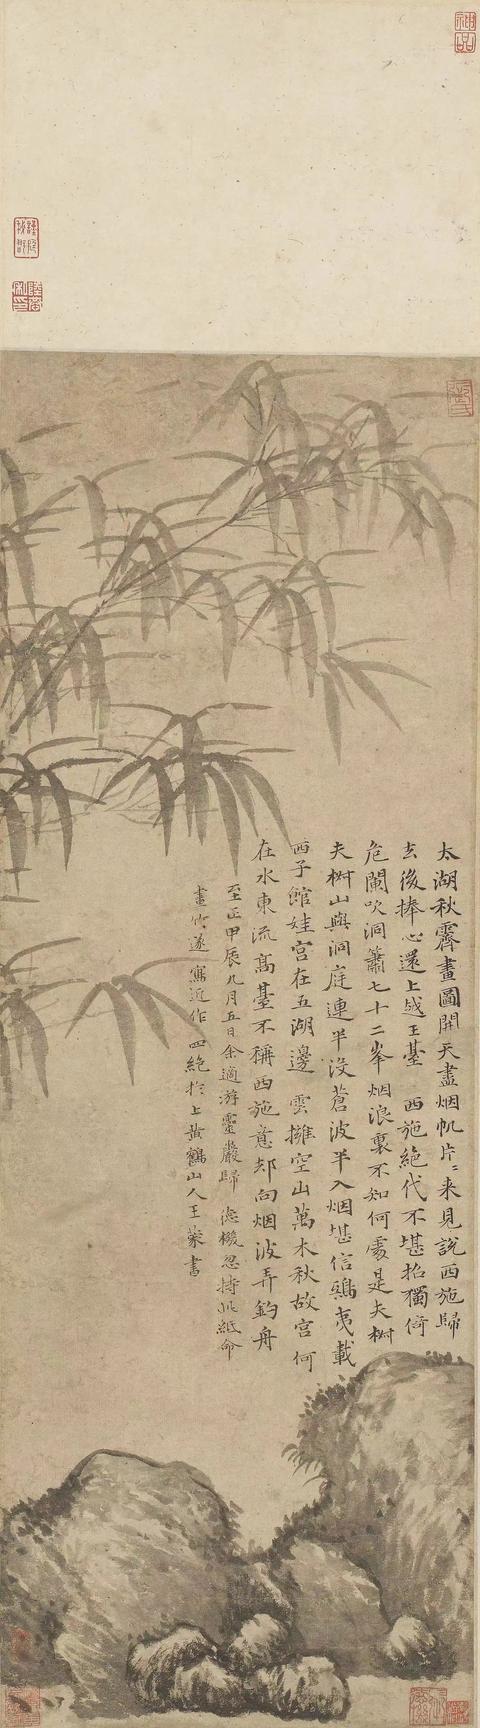 太湖秋霽畫圖開天盡烟帆片〻來見說西施歸
去後捧心還上越王臺　西施絕代不堪招獨倚
危闌吹洞簫七十二峯烟浪裏不知何處是夫椒
夫椒山與洞庭連半没蒼波半入烟堪信鴟夷載
西子館娃宮在五湖邊　雲擁空山萬木秋故宮何
在水東流高臺不稱西施意却向烟波弄釣舟
至正甲辰九月五日余適游靈巖歸　德機忽持此紙命
畫竹遂寫近作四絕於上黄鶴山人王蒙書
神品